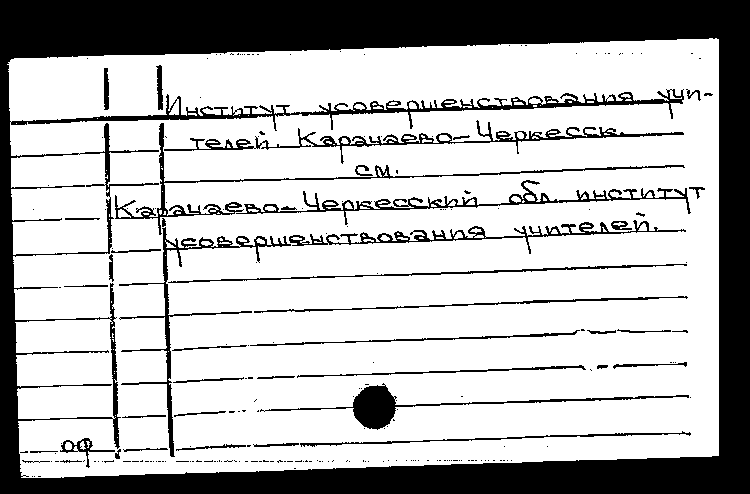 Институт усовершенствования учи-
телей. Карачаево-Черкесск.
см.
Карачаево-Черкесский обл. институт
усовершенствования учителей.
оф